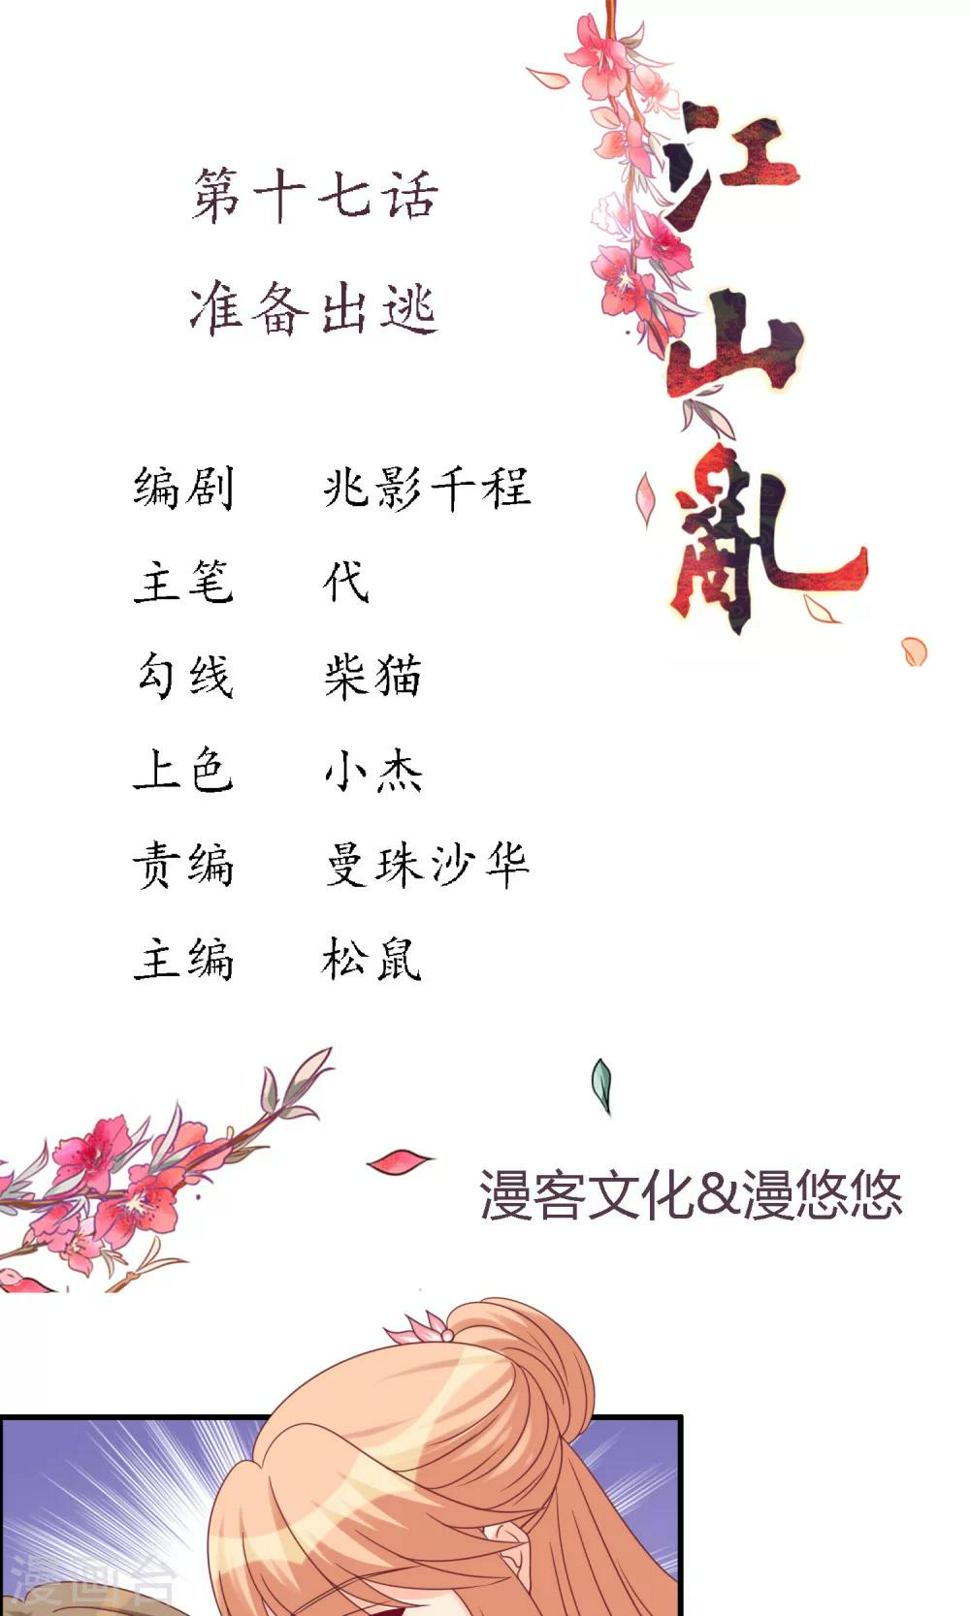 江山亂
第十七话
准备出逃
编剧 兆影千程
主笔 代
勾线 柴猫
上色 小杰
责编 曼珠沙华
主编 松鼠
漫客文化&漫悠悠
漫画台